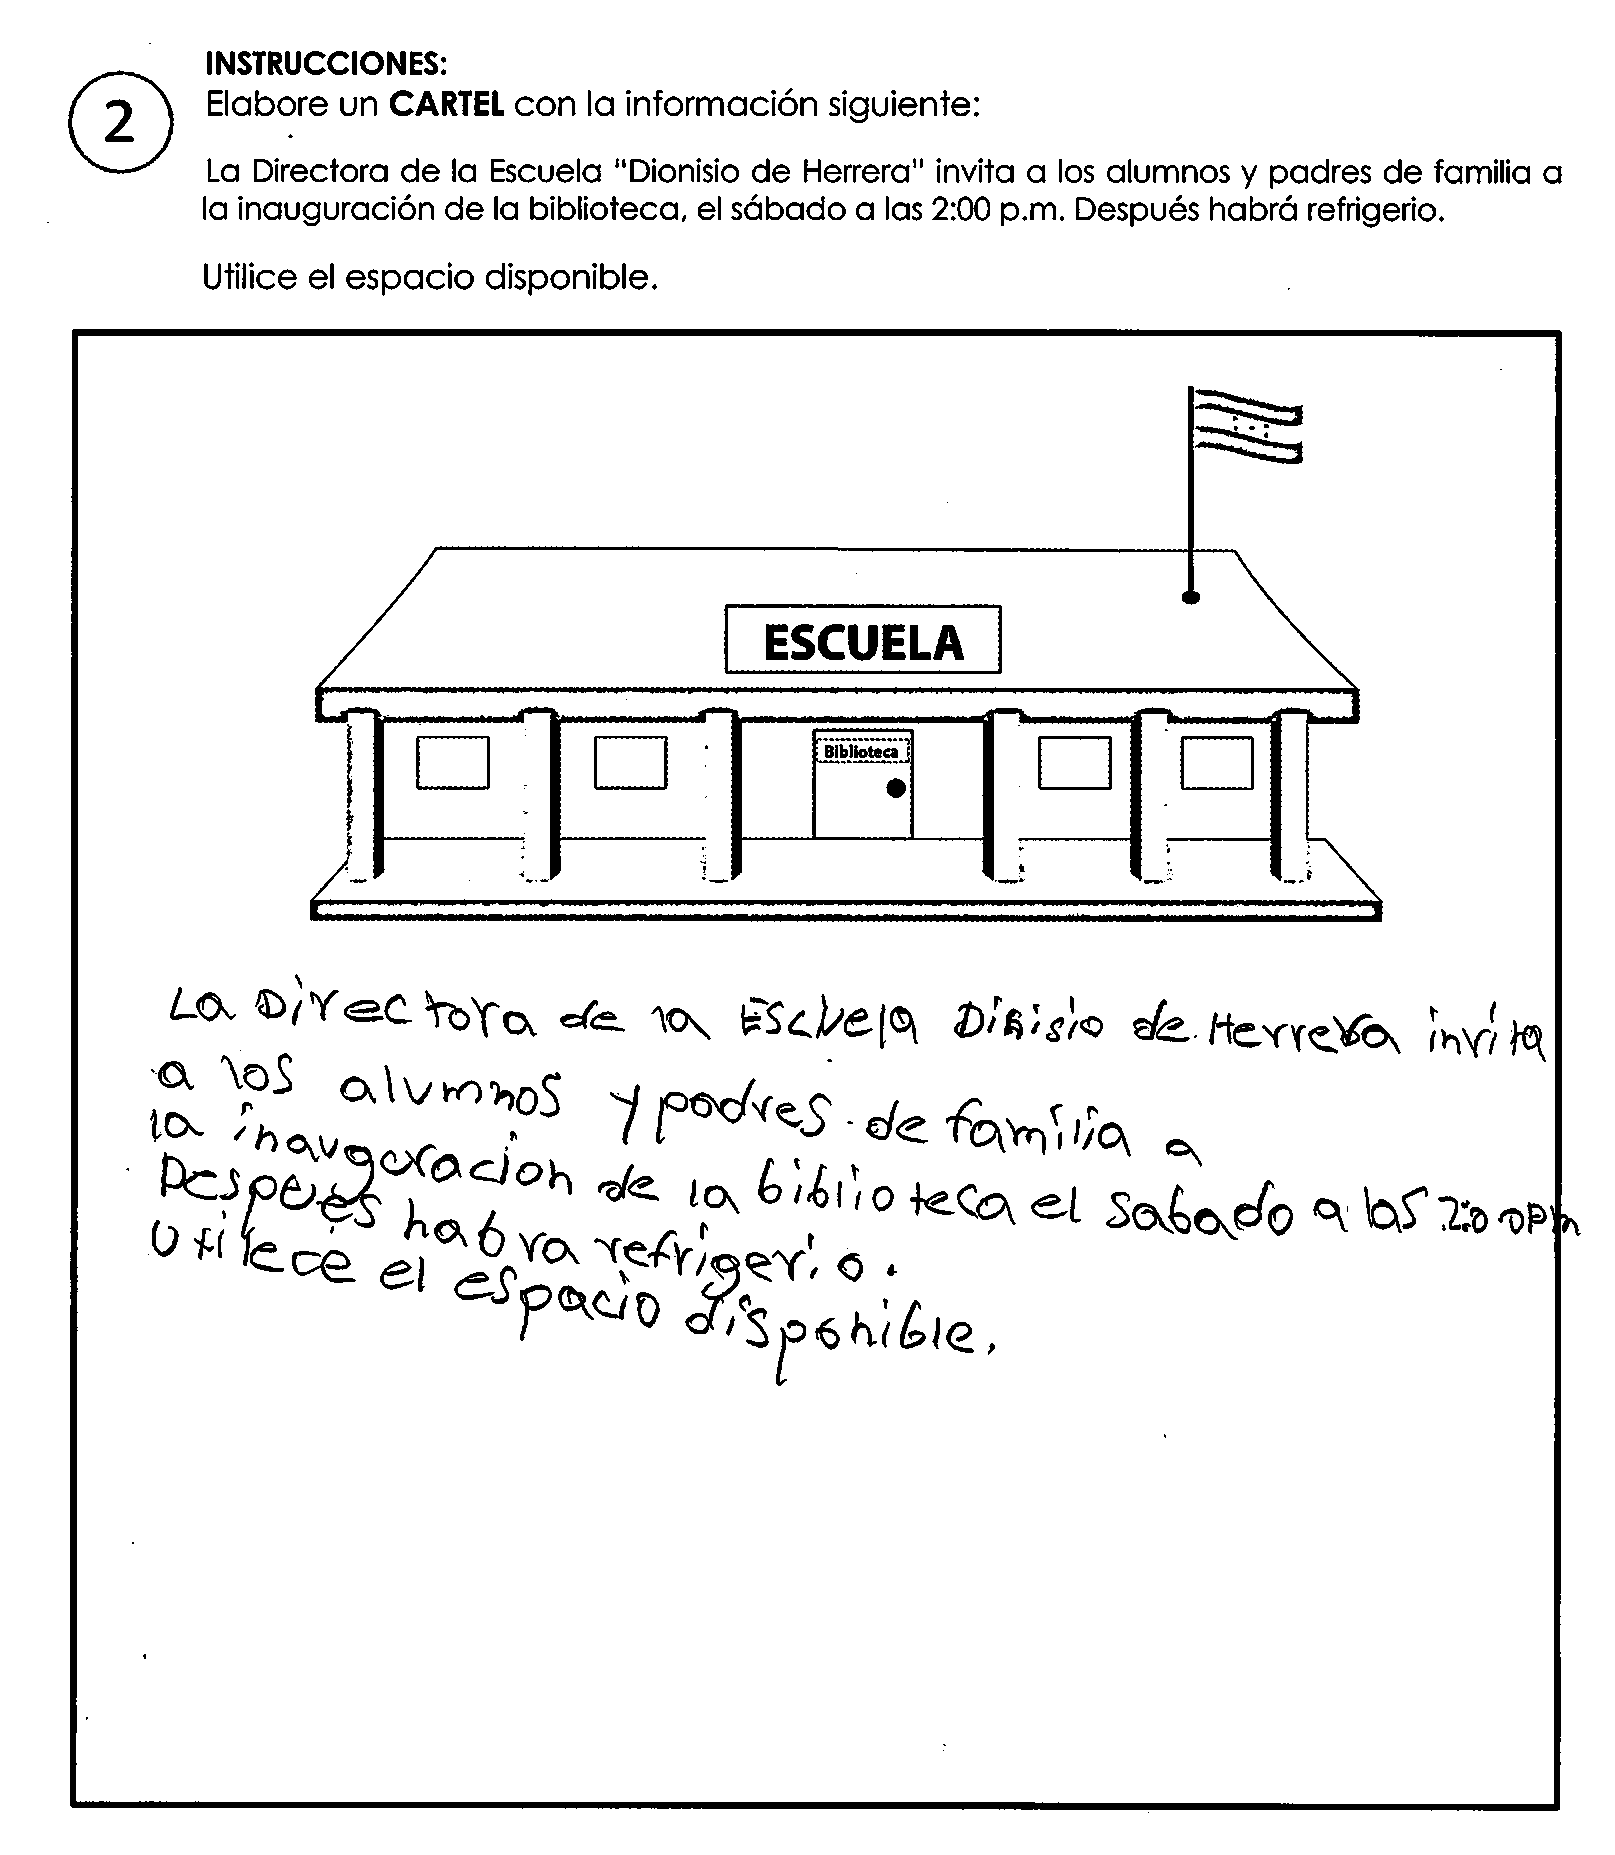 INSTRUCCIONES:
2
Elabore un CARTEL con la información siguiente:
La Directora de la Escuela "Dionisio de Herrera" invita a los alumnos y padres de familia a
la inauguración de la biblioteca, el sábado a las 2:00 p.m. Después habrá refrigerio.
Utilice el espacio disponible.
ESCUELA
Biblioteca
La Directora de la Escuela Dinisio de Herrera invita
a los alumnos y padres de familia a
la inauguracion de la biblioteca el sabado a las 2:00 pm
Despues habra refrigerio.
Utilece el espacio disponible.